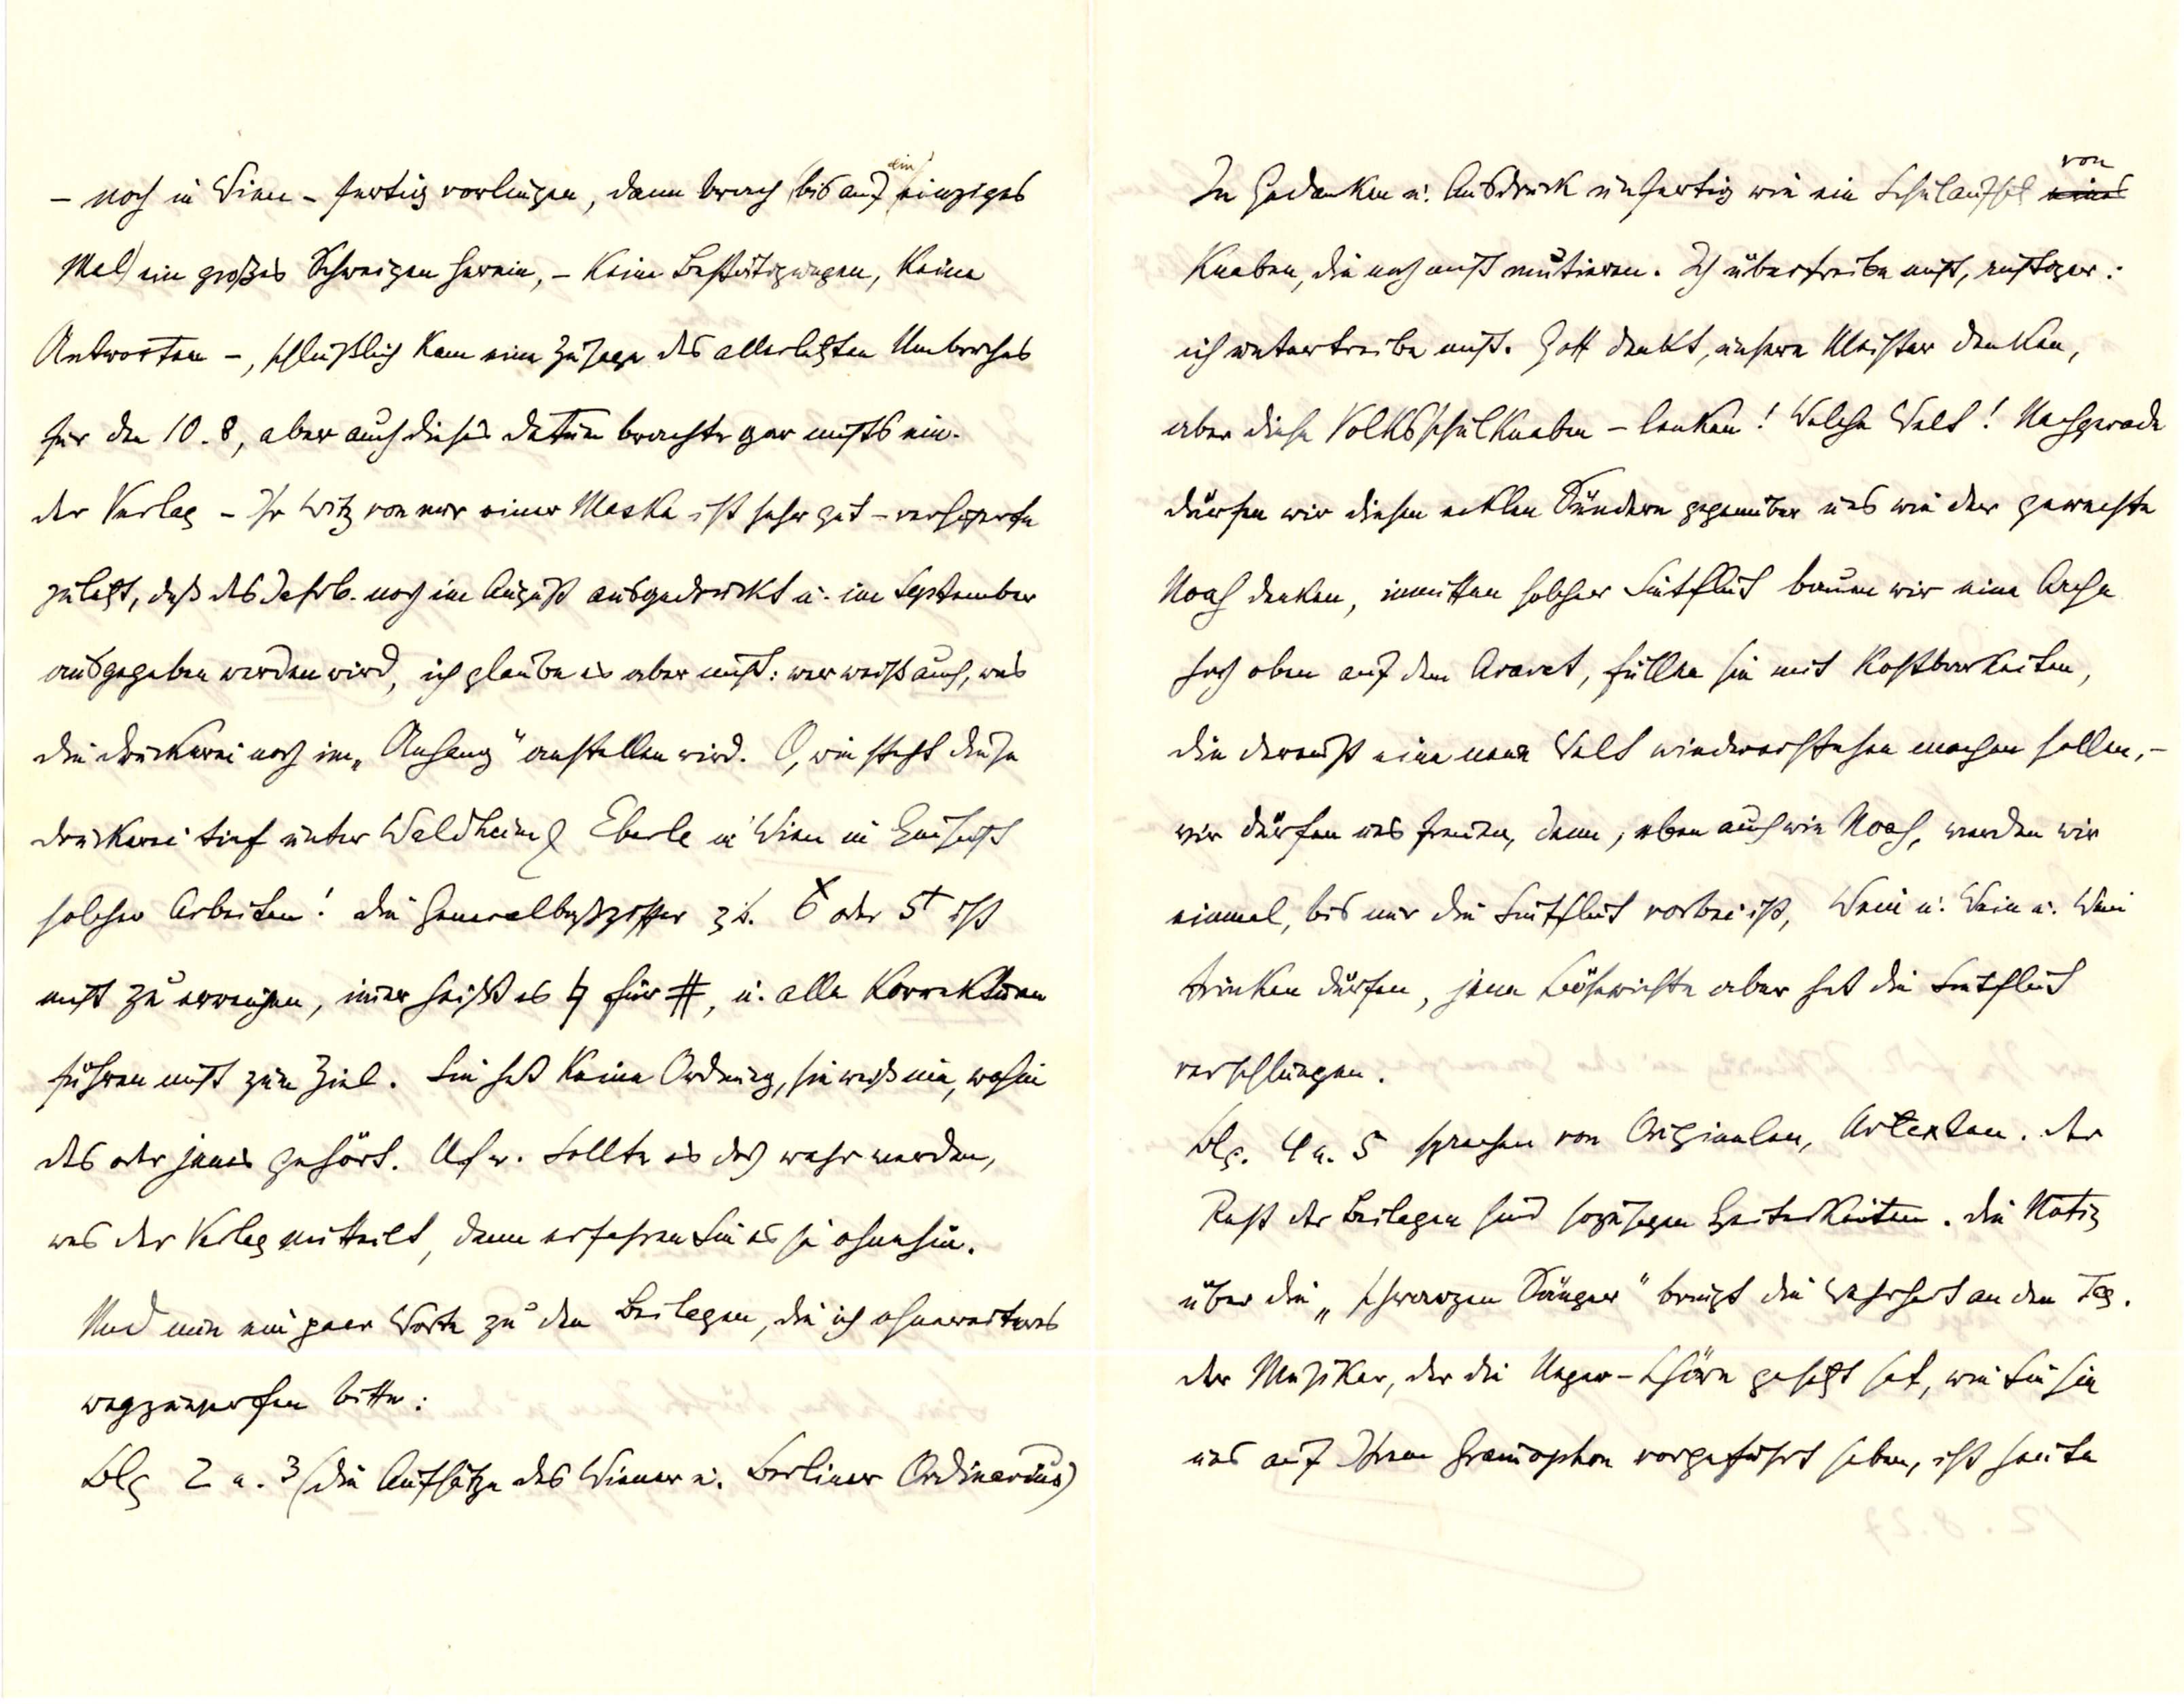 – noch in Wien – fertig vorliegen, dann brach (bis auf ein einziges
Mal) ein großes Schweigen herein, – keine Bestätigungen, keine
Antworten –, schließlich kam eine Zusage des allerletzten Umbruches
für den 10. 8, aber auch dieses Datum brachte gar nichts ein.
Der Verlag – Ihr Witz von nur einer Maske ist sehr gut – versicherte
zuletzt, daß das Jahrb. noch im August ausgedruckt u. im September
ausgegeben werden wird, ich glaube es aber nicht: wer weiß auch, was
die Druckerei noch im „Anhang" anstellen wird. O, wie steht diese
Druckerei tief unter Waldheim & Eberle in Wien in Hinsicht
solcher Arbeiten! Die Generalbaßziffer z.B. 6̽ oder 5+ ist
nicht zu erreichen, im̅er heißt es ♮ für #, u. alle Korrekturen
führen nicht zum Ziel. Sie hat keine Ordnung, sie weiß nie, wohin
das oder jenes gehört. Usw. Sollte es doch wahr werden,
was der Verlag mitteilt, dann erfahren Sie es ja ohnehin.
Und nun ein paar Worte zu den Beilagen, die ich ohneweiteres
wegzuwerfen bitte:
Blg 2 u. 3 (die Aufsätze des Wiener u. Berliner Ordinarius)
In Gedanken u. Ausdruck unfertig wie ein Schulaufsatz eines von
Knaben, die noch nicht mutieren. Ich übertreibe nicht, richtiger:
ich untertreibe nicht. Gott denkt, unsere Meister denken,
aber diese Volksschulknaben – lenken! Welche Welt! Nachgerade
dürfen wir diesen eklen Sündern gegenüber uns wie der gerechte
Noah denken, inmitten solcher Sintflut bauen wir eine Arche
hoch oben auf dem Ararat, füllen sie mit Kostbarkeiten,
die dereinst eine neue Welt wiedererstehen machen sollen, –
wir dürfen uns freuen, denn, eben auch wie Noah, werden wir
einmal, bis nur die Sintflut vorbei ist, Wein u. Wein u. Wein
trinken dürfen, jene Bösewichte aber hat die Sintflut
verschlungen.
Blg. 4 u. 5 sprechen von Originalen, Urtexten. Der
Rest der Beilagen sind sozusagen Heiterkeiten. Die Notiz
über die „schwarzen Sänger" bringt die Wahrheit an den Tag.
Der Musiker, der die Neger-Chöre gesetzt hat, wie Sie sie
uns auf Ihrem Gramophon vorgeführt haben, ist heute